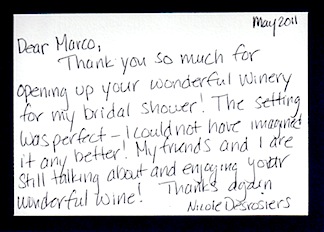 May 2011
Dear Marco,
Thank you so much for
opening up your wonderful winery
for my bridal shower! The setting
was perfect - I could not have imagined
it any better! My friends and I are
still talking about and enjoying your
wonderful wine! Thanks again
Nicole Desrosiers